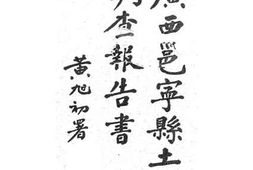 西邕寧縣土
查報告書
黃旭初署